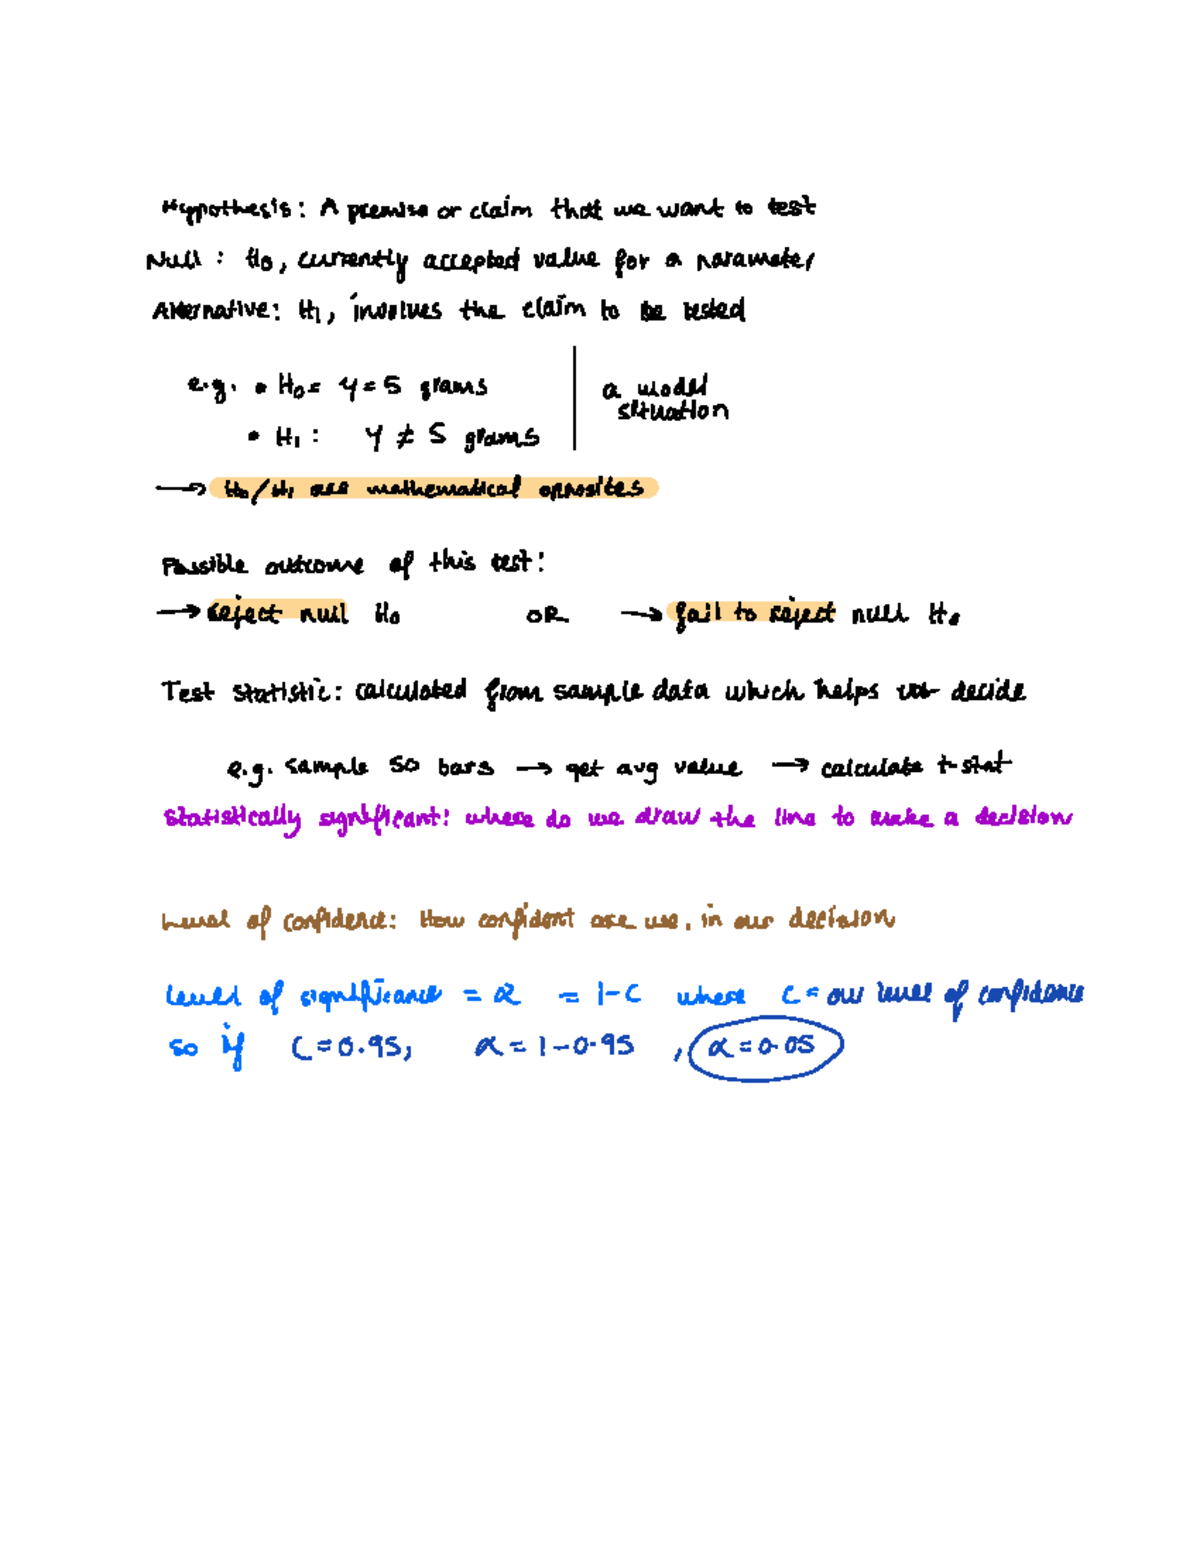 Hypothesis: A premise or claim that we want to test
Null: H₀, currently accepted value for a parameter
Alternative: H₁, involves the claim to be tested
e.g. • H₀= Y=5 grams
• H₁: Y ≠ 5 grams
a model
situation
→ H₀/H₁ are mathematical opposites
Possible outcome of this test:
→ reject null H₀ OR → fail to reject null H₀
Test statistic: calculated from sample data which helps us decide
e.g. sample 50 bars → get avg value → calculate t-stat
Statistically significant: where do we draw the line to make a decision
Level of confidence: How confident are we, in our decision
Level of significance = α = 1-C where C = our level of confidence
so if C=0.95, α = 1-0.95, α=0.05